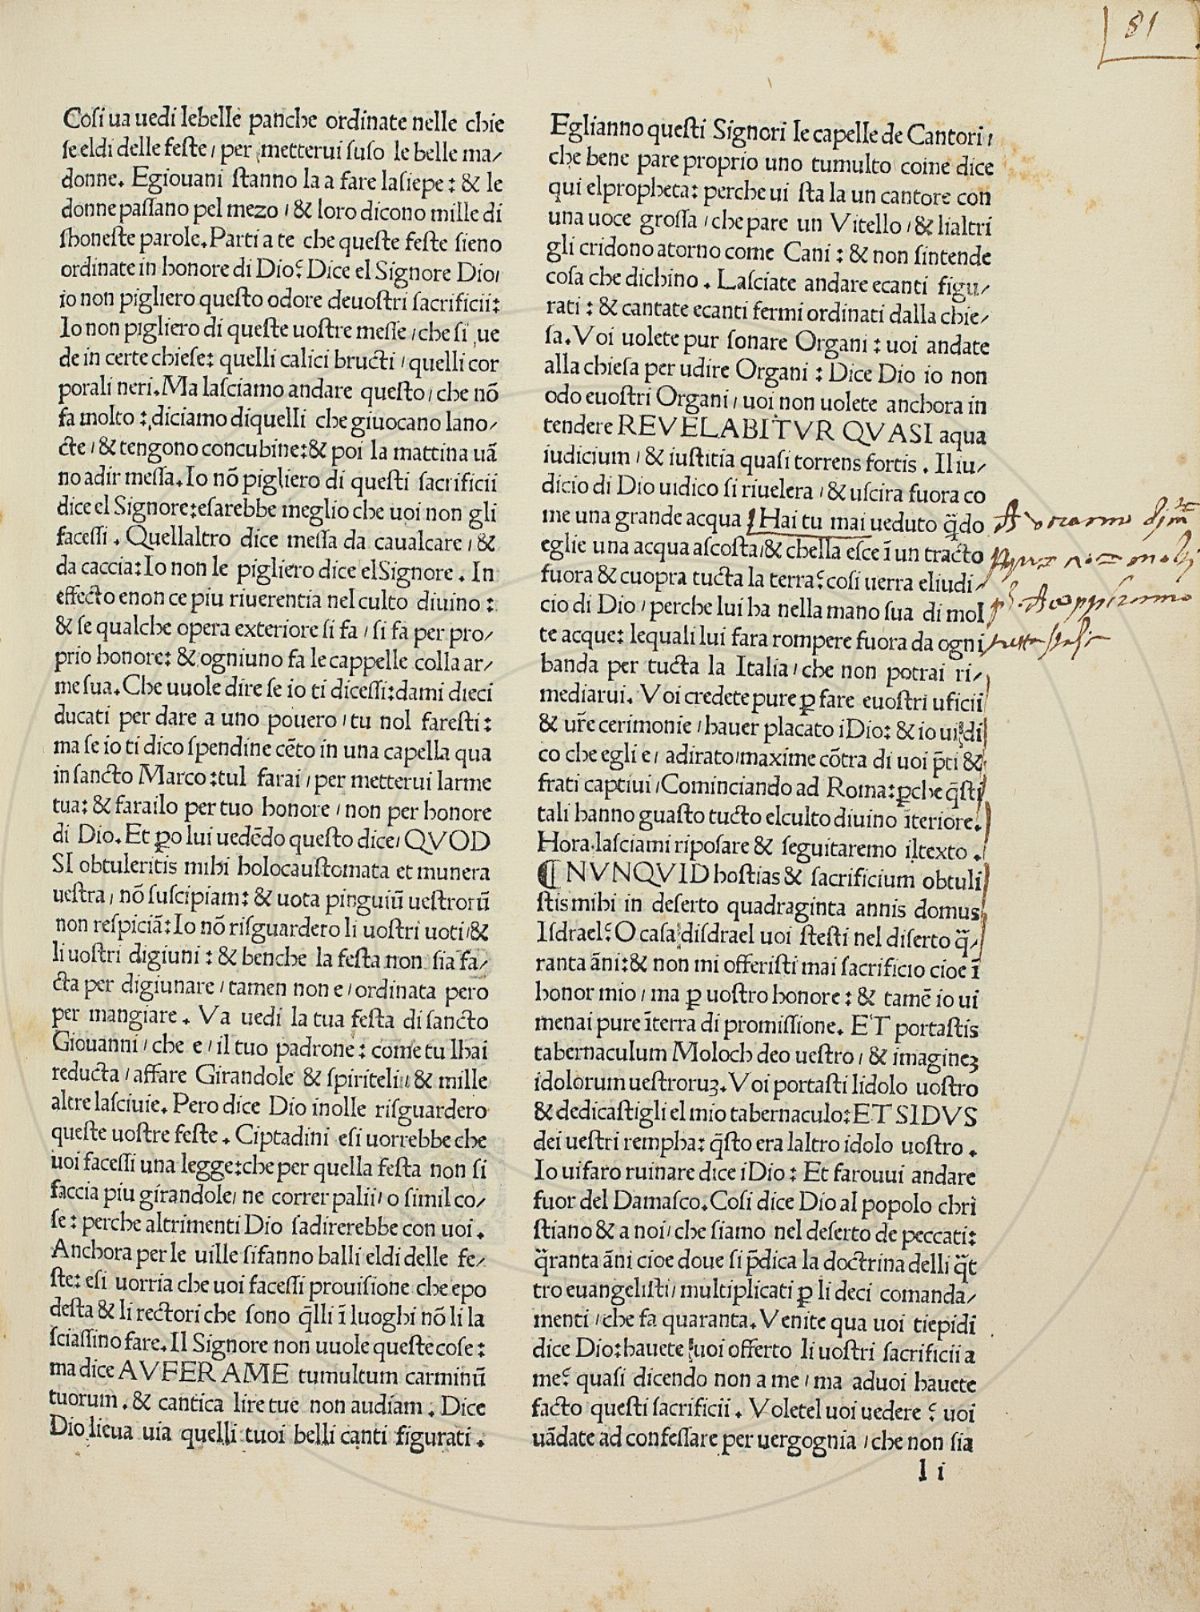 81
Cosi ua uedi lebelle panche ordinate nelle chie
se eldi delle feste / per metterui suso le belle ma/
donne. Egiouani stanno la a fare lasiepe: & le
donne passano pel mezo / & loro dicono mille di
shoneste parole. Parti a te che queste feste sieno
ordinate in honore di Dio? Dice el Signore Dio/
io non pigliero questo odore deuostri sacrificii:
Io non pigliero di queste uostre messe / che si ue
de in certe chiese: quelli calici bructi / quelli cor
porali neri. Ma lasciamo andare questo / che nõ
fa molto: diciamo diquelli che giuocano lano/
cte / & tengono concubine: & poi la mattina uã
no adir messa. Io nõ pigliero di questi sacrificii
dice el Signore: esarebbe meglio che uoi non gli
facessi. Quellaltro dice messa da caualcare / &
da caccia: Io non le pigliero dice elSignore. In
effecto enon ce piu riuerentia nel culto diuino:
& se qualche opera exteriore si fa / si fa per pro/
prio honore: & ogniuno fa le cappelle colla ar/
me sua. Che uuole dire se io ti dicessi: dami dieci
ducati per dare a uno pouero / tu nol faresti:
ma se io ti dico spendine cẽto in una capella qua
in sancto Marco: tul farai / per metterui larme
tua: & farailo per tuo honore / non per honore
di Dio. Et ꝑo lui uedẽdo questo dice / QVOD
SI obtuleritis mihi holocaustomata et munera
uestra / nõ suscipiam: & uota pinguiũ uestrorũ
non respiciã: Io nõ risguardero li uostri uoti / &
li uostri digiuni: & benche la festa non sia fa/
cta per digiunare / tamen non e / ordinata pero
per mangiare. Va uedi la tua festa di sancto
Giouanni / che e / il tuo padrone: come tu lhai
reducta / affare Girandole & spiriteli / & mille
altre lasciuie. Pero dice Dio inolle risguardero
queste uostre feste. Ciptadini esi uorrebbe che
uoi facessi una legge: che per quella festa non si
faccia piu girandole / ne correr palii / o simil co/
se: perche altrimenti Dio sadirerebbe con uoi.
Anchora per le uille sifanno balli eldi delle fe/
ste: esi uorria che uoi facessi prouisione che epo
desta & li rectori che sono q̃lli ĩ luoghi nõ li la
sciassino fare. Il Signore non uuole queste cose:
ma dice AVFER AME tumultum carminũ
tuorum. & cantica lire tue non audiam. Dice
Dio lieua uia quelli tuoi belli canti figurati.
Eglianno questi Signori le capelle de Cantori /
che bene pare proprio uno tumulto come dice
qui elpropheta: perche ui sta la un cantore con
una uoce grossa / che pare un Vitello / & lialtri
gli cridono atorno come Cani: & non sintende
cosa che dichino. Lasciate andare ecanti figu/
rati: & cantate ecanti fermi ordinati dalla chie/
sa. Voi uolete pur sonare Organi: uoi andate
alla chiesa per udire Organi: Dice Dio io non
odo euostri Organi / uoi non uolete anchora in
tendere REVELABITVR QVASI aqua
iudicium / & iustitia quasi torrens fortis. Il iu/
dicio di Dio uidico si riuelera / & uscira fuora co
me una grande acqua / Hai tu mai ueduto q̃do
eglie una acqua ascosta / & chella esce ĩ un tracto
fuora & cuopra tucta la terra? cosi uerra eliudi/
cio di Dio / perche lui ha nella mano sua di mol
te acque: lequali lui fara rompere fuora da ogni
banda per tucta la Italia / che non potrai ri/
mediarui. Voi credete pure ꝑ fare euostri uficii
& ur̃e cerimonie / hauer placato iDio: & io ui di
co che egli e / adirato / maxime cõtra di uoi p̃ti &
frati captiui / Cominciando ad Roma: ꝑche q̃sti
tali hanno guasto tucto elculto diuino ĩteriore.
Hora lasciami riposare & seguitaremo iltexto.
¶ NVNQVID hostias & sacrificium obtuli
stis mihi in deserto quadraginta annis domus
Isdrael? O casa disdrael uoi stesti nel diserto q̃/
ranta ãni: & non mi offeristi mai sacrificio cioe ĩ
honor mio / ma ꝑ uostro honore: & tamẽ io ui
menai pure ĩterra di promissione. ET portastis
tabernaculum Moloch deo uestro / & imagineꝫ
idolorum uestroruꝫ. Voi portasti lidolo uostro
& dedicastigli el mio tabernaculo: ET SIDVS
dei uestri rempha: q̃sto era laltro idolo uostro.
Io uifaro ruinare dice iDio: Et farouui andare
fuor del Damasco. Cosi dice Dio al popolo chri
stiano & a noi / che siamo nel deserto de peccati:
q̃ranta ãni cioe doue si p̃dica la doctrina delli q̃t
tro euangelisti / multiplicati ꝑ li deci comanda/
menti / che fa quaranta. Venite qua uoi tiepidi
dice Dio: hauete uoi offerto li uostri sacrificii a
me? quasi dicendo non a me / ma aduoi hauete
facto questi sacrificii. Voletel uoi uedere? uoi
uãdate ad confessare per uergognia / che non sia
l i